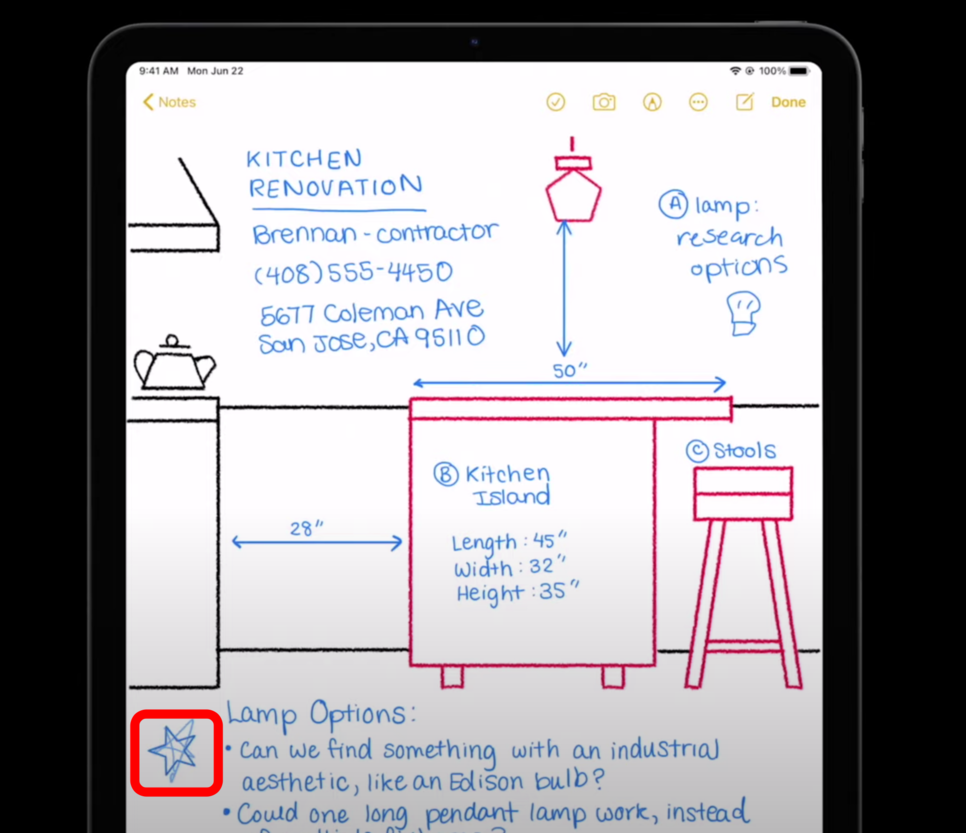 9:41 AM Mon Jun 22
100%
Notes
Done
KITCHEN
RENOVATION
Brennan - contractor
(408) 555-4450
5677 Coleman Ave
San Jose, CA 95110
A lamp:
research
options
50"
C Stools
B Kitchen
Island
28"
Length : 45"
Width : 32"
Height : 35"
Lamp Options:
• Can we find something with an industrial
aesthetic, like an Edison bulb?
• Could one long pendant lamp work, instead